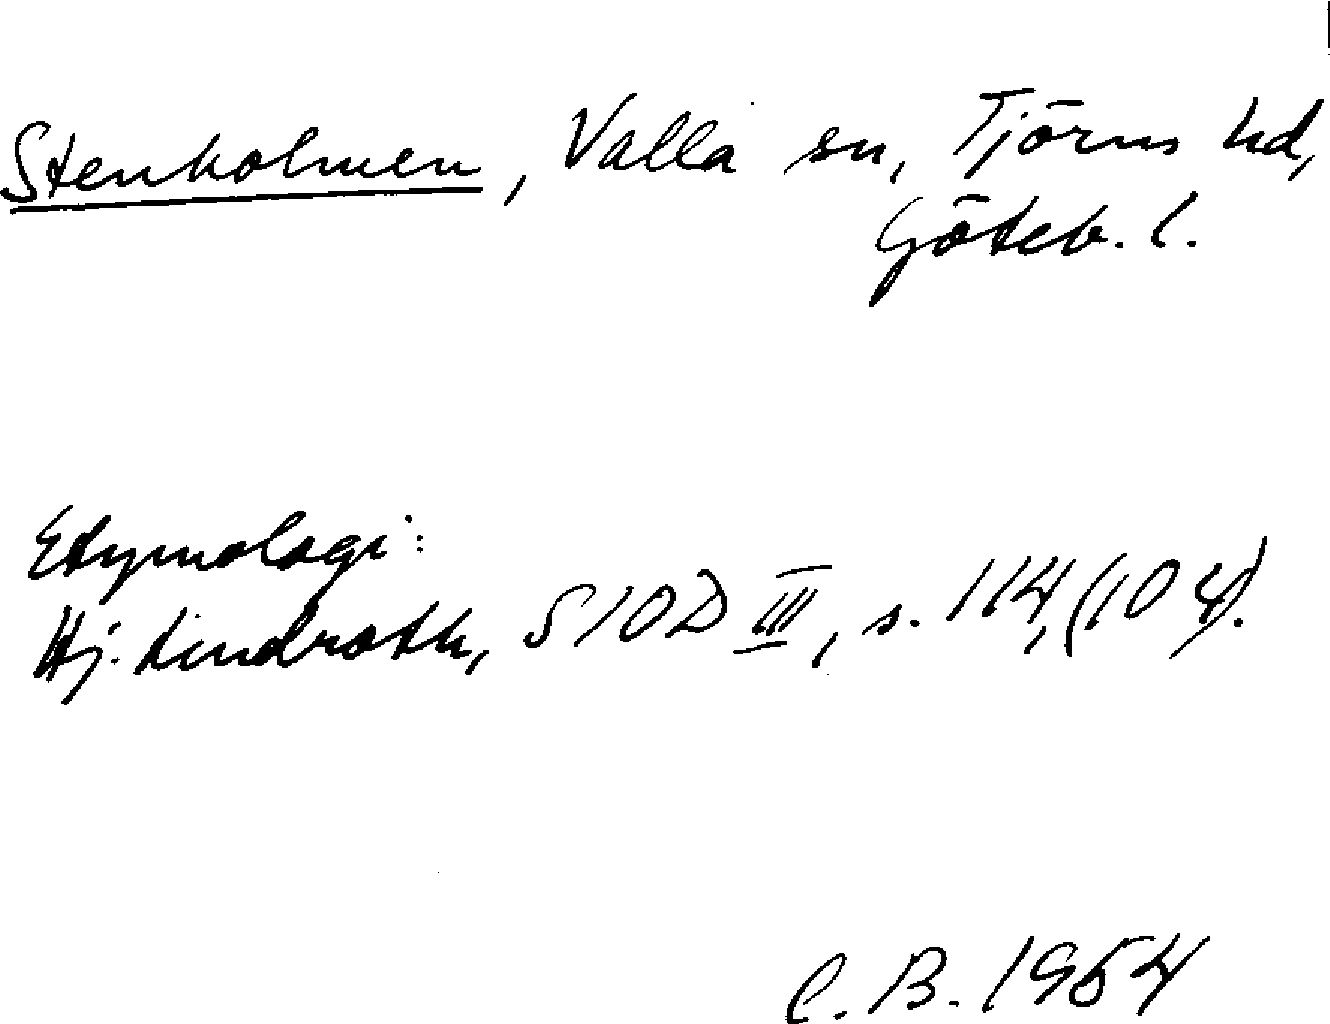 Stenholmen, Valla sn, Tjörns hd,
Göteb. l.
Etymologi:
Hj. Lindroth, SIOD III, s. 114, (104).
C. B. 1954